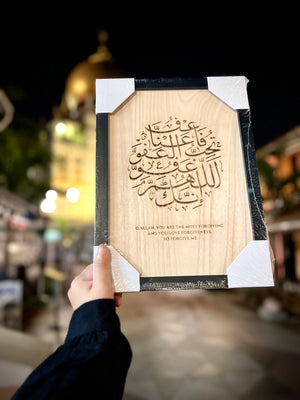 اللَّهُمَّ إِنَّكَ عَفُوٌّ تُحِبُّ الْعَفْوَ فَاعْفُ عَنَّا
O ALLAH, YOU ARE THE MOST FORGIVING
AND YOU LOVE FORGIVENESS,
SO FORGIVE ME